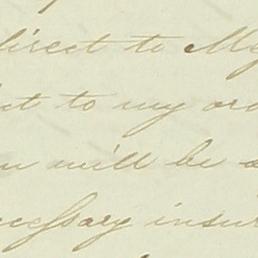 direct to My
to my or
will be
necessary insur